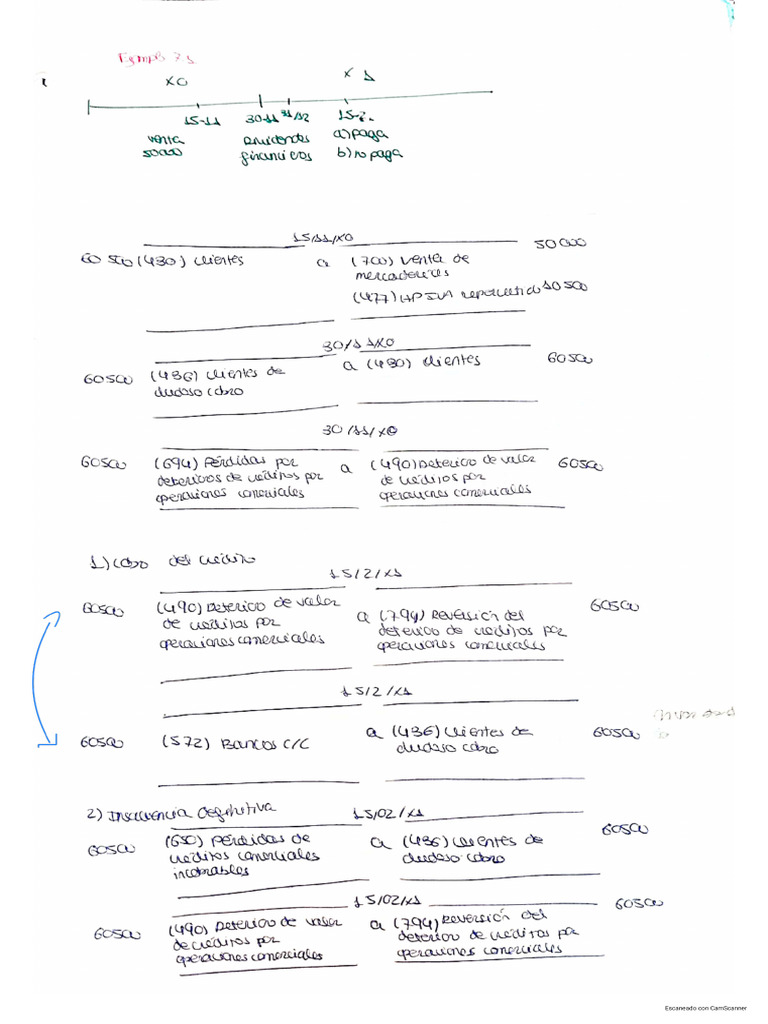 Ejemplo 7.1
X0
X1
15-11
30-11
31/12
15-2.
venta
50000
dividendos
financieros
a) paga
b) no paga
15/11/X0
60500 (430) clientes a (700) Venta de mercaderías 50000
(477) HP IVA repercutido 10500
30/11/X0
60500 (436) clientes de dudoso cobro a (430) clientes 60500
30/11/X0
60500 (694) Pérdidas por deterioros de créditos por operaciones comerciales a (490) Deterioro de valor de créditos por operaciones comerciales 60500
1) Cobro del crédito
15/2/X1
60500 (490) Deterioro de valor de créditos por operaciones comerciales a (794) Reversión del deterioro de créditos por operaciones comerciales 60500
15/2/X1
60500 (572) Bancos C/C a (436) clientes de dudoso cobro 60500
2) Insolvencia definitiva
15/02/X1
60500 (650) Pérdidas de créditos comerciales incobrables a (436) clientes de dudoso cobro 60500
15/02/X1
60500 (490) Deterioro de valor de créditos por operaciones comerciales a (794) Reversión del deterioro de créditos por operaciones comerciales 60500
Escaneado con CamScanner